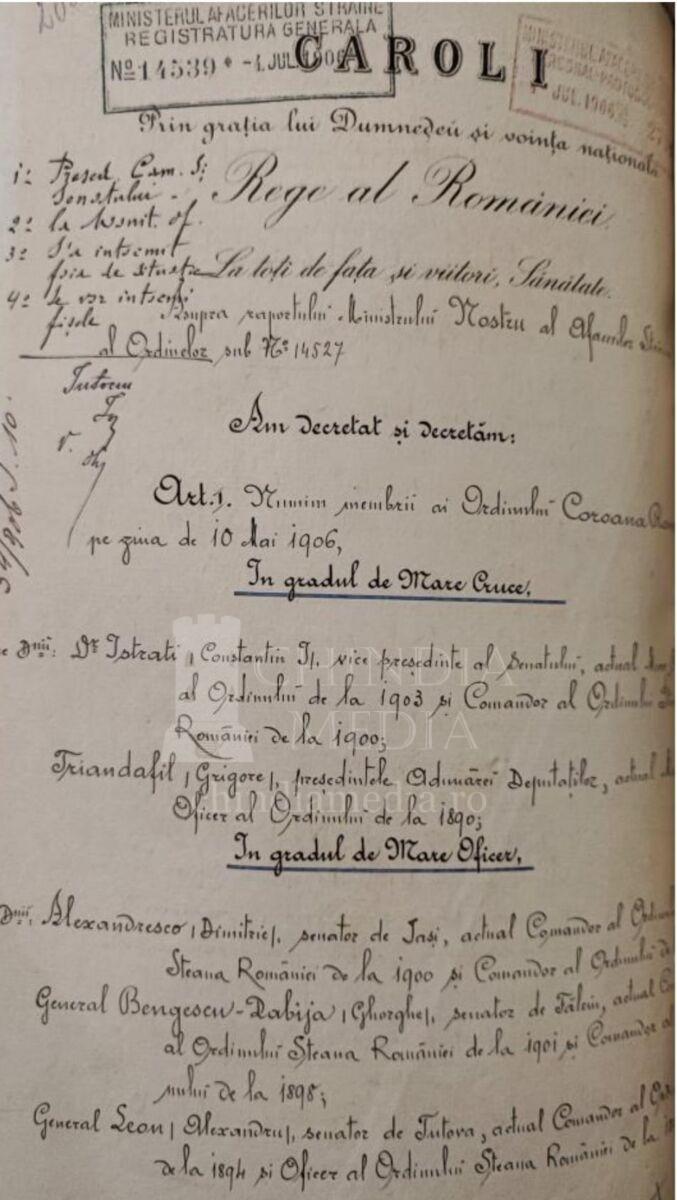 MINISTERUL AFACERILOR STRAINE
REGISTRATURA GENERALA
No 14539 * -4. JUL. 1906
JUL. 1906
CAROLI
Prin grația lui Dumnedeu și voința națională
Rege al României
1º Președ. Cam. Și
Senatului
2º la Monit. of.
3º S'a intocmit
4º Se vor
fișele
La toți de față și viitori, Sănătate.
Asupra raportului Ministrului Nostru al Afacerilor
al Ordinelor sub Nº 14527
Am decretat și decretăm:
Art. 1. Numim membrii ai Ordinului Coroana
pe ziua de 10 Mai 1906,
In gradul de Mare Cruce,
Dnii: Dr Istrati (Constantin I), vice președinte al Senatului, actual
al Ordinului de la 1903 și Comandor al Ordinului
României de la 1900;
Triandafil (Grigore), președintele Adunărei Deputaților, actual
Oficer al Ordinului de la 1890;
In gradul de Mare Oficer,
Dnii. Alexandresco (Dimitrie), senator de Iași, actual Comandor al
Steaua României de la 1900 și Comandor al Ordinului de
General Bengescu-Dabija (Ghorghe), senator de Fălciu, actual
al Ordinului Steaua României de la 1901 și Comandor al
nului de la 1898;
General Leon (Alexandru), senator de Tutova, actual Comandor al
de la 1894 și Oficer al Ordinului Steaua României de la
CHINDIA
MEDIA
chindiamedia.ro